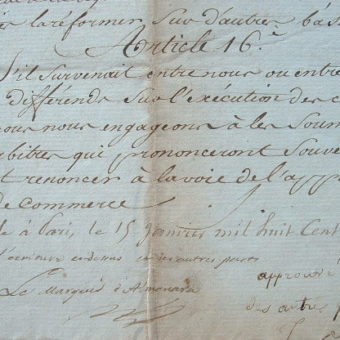 la reformer sur d'autres bas
Article 16.
S'il survenait entre nous ou entre
différends sur l'exécution des c
nous nous engageons à les soum
arbitres qui prononceront souve
et renoncer à la voie de l'app
de commerce
à Paris, le 15 Janvier mil huit Cent
l'écriture ci-dessus et des autres parts
approuvé
Le Marquis d'Almenara
des autres p